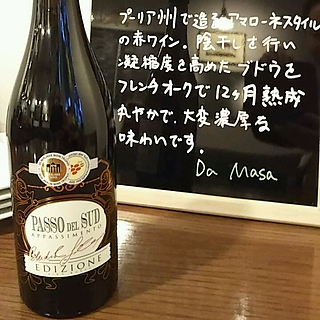 プーリア州で造るアマローネスタイル
の赤ワイン。陰干しを行い
凝縮度を高めたブドウを
フレンチオークで12ヶ月熟成
丸やかで、大変濃厚な
味わいです。
Da Masa
PASSO DEL SUD
APPASSIMENTO
EDIZIONE